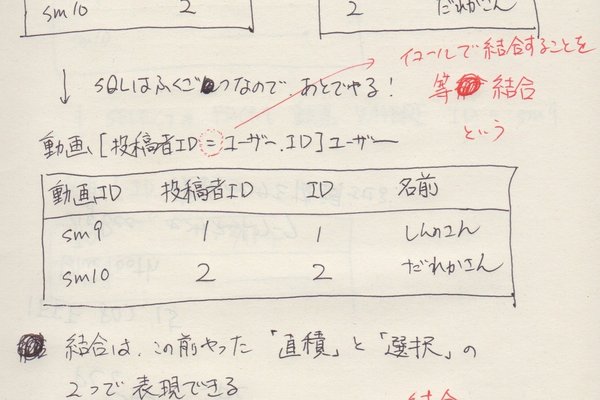 sm10 2
2 だれかさん
イコールで結合することを
等 結合
という
↓ SQLはふくざつなので、あとでやる!
動画 [投稿者ID = ユーザー.ID] ユーザー
動画ID 投稿者ID ID 名前
sm9 1 1 しんのさん
sm10 2 2 だれかさん
結合は、この前やった「直積」と「選択」の
2つで表現できる
結合